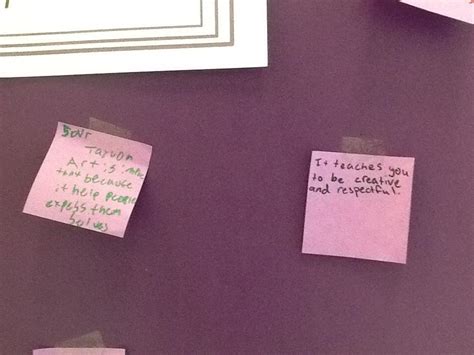 Taiyon
Art is
that because
it help people
expess them
selves
It teaches you
to be creative
and respectful.